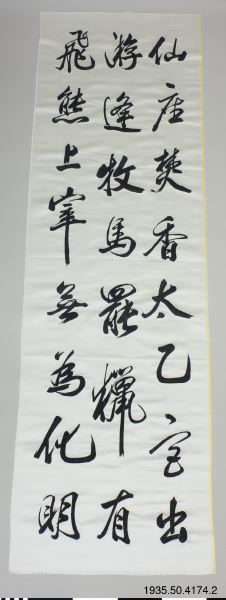 仙座焚香太乙宮出
游逢牧馬罷獵有
飛熊上宰無為化明
1935.50.4174.2